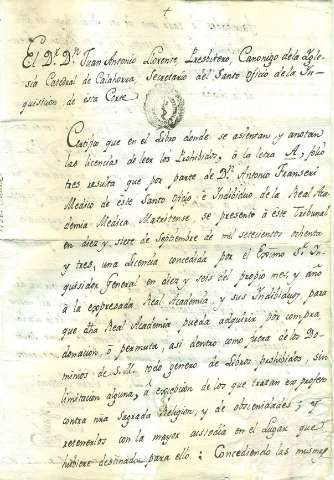 El D.r D.n Juan Antonio Llorente, Presbitero, Canonigo de la Ygle-
sia Catedral de Calahorra, Secretario del Santo Oficio de la In-
quisicion de esta Corte
Certifico que en el Libro donde se asientan y anotan
las licencias de leer los Prohibidos, á la letra A, folio
tres resulta que por parte de D.n Antonio Franseri
Medico de este Santo oficio, é Individuo de la Real Aca-
demia Medica Matritense, se presentó á este Tribunal
en diez y siete de Septiembre de mil setecientos ochenta
y tres, una Licencia concedida por el Exmo S.r In-
quisidor General en diez y seis del propio mes, y año
á la expresada Real Academia, y sus Individuos para
que dha Real Academia, pueda adquirir por compra
donacion, ó permuta, asi dentro como fuera de los Do-
minios de S.M. todo genero de Libros prohibidos, sin
limitacion alguna, á excepcion de los que tratan ex profeso
contra nra Sagrada Religion, y de obscenidades; y
retenerlos con la mayor custodia en el Lugar que
hubiere destinado para ello: Concediendo las mismas